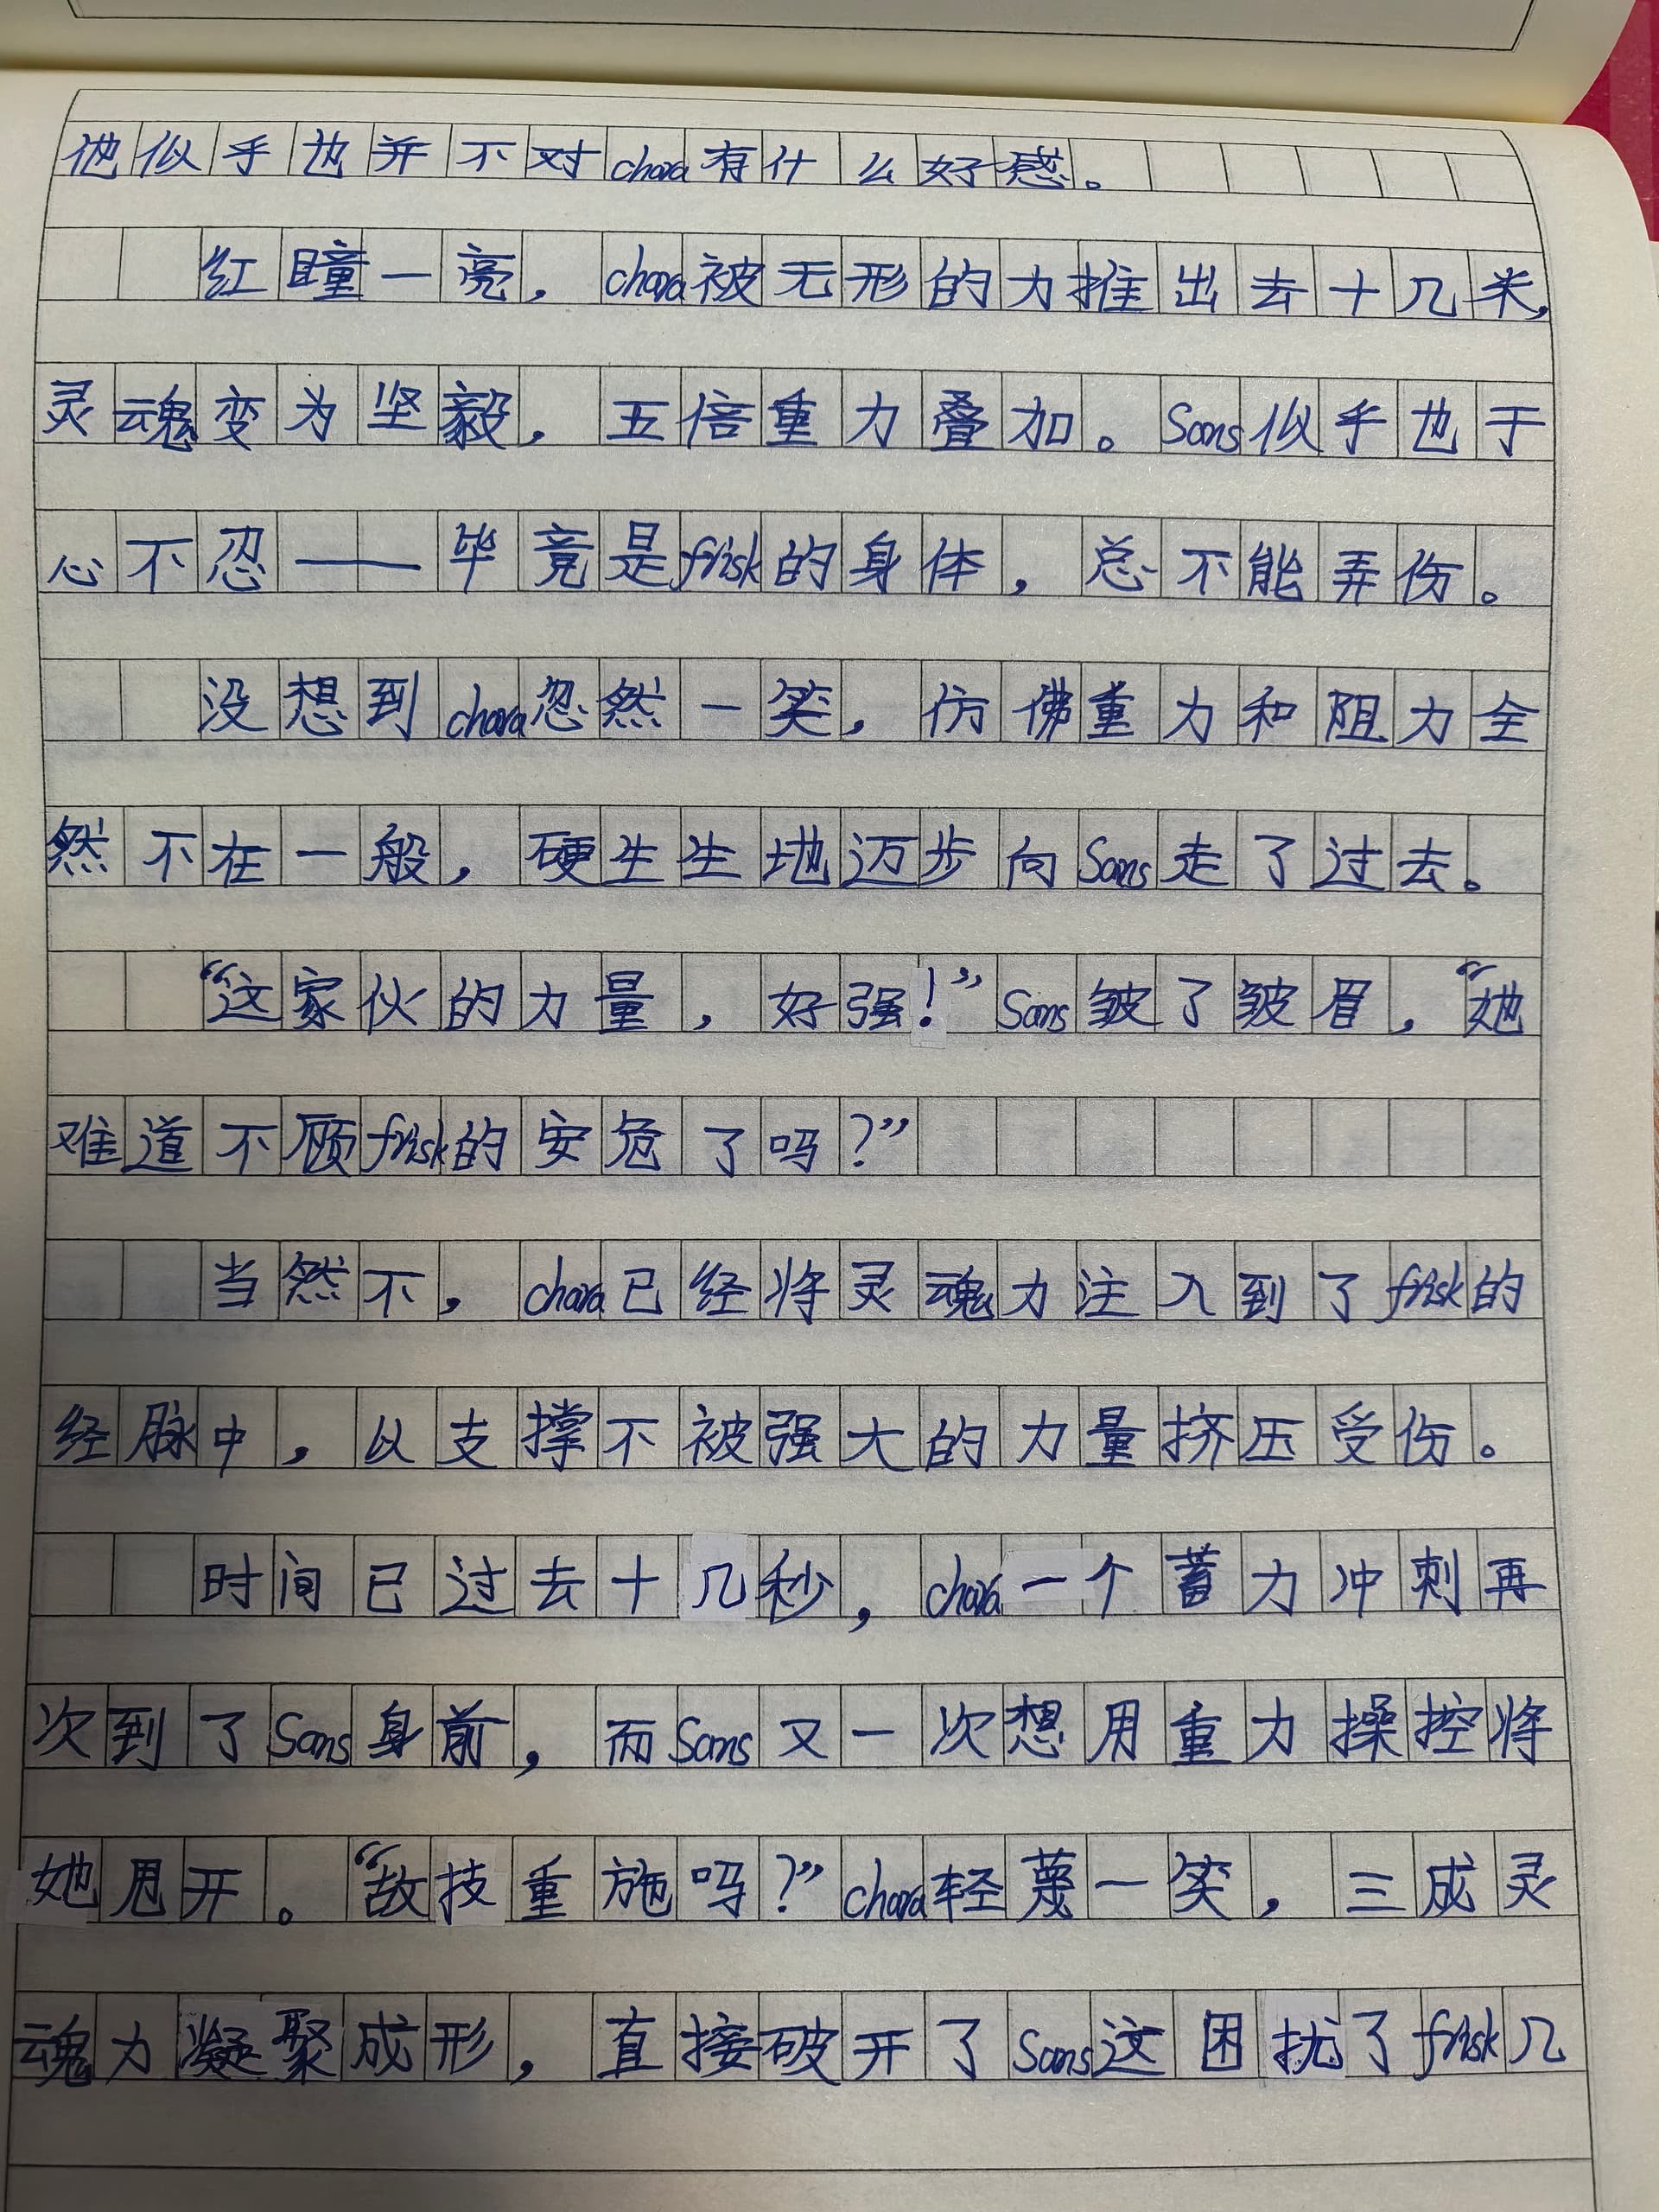 他似乎也并不对chara有什么好感。
红瞳一亮，chara被无形的力推出去十几米，
灵魂变为坚毅，五倍重力叠加。Sans似乎也于
心不忍——毕竟是frisk的身体，总不能弄伤。
没想到chara忽然一笑，仿佛重力和阻力全
然不在一般，硬生生地迈步向Sans走了过去。
“这家伙的力量，好强！”Sans皱了皱眉，“她
难道不顾frisk的安危了吗？”
当然不，chara已经将灵魂力注入到了frisk的
经脉中，以支撑不被强大的力量挤压受伤。
时间已过去十几秒，chara一个蓄力冲刺再
次到了Sans身前，而Sans又一次想用重力操控将
她甩开。“故技重施吗？”chara轻蔑一笑，三成灵
魂力凝聚成形，直接破开了Sans这困扰了frisk几